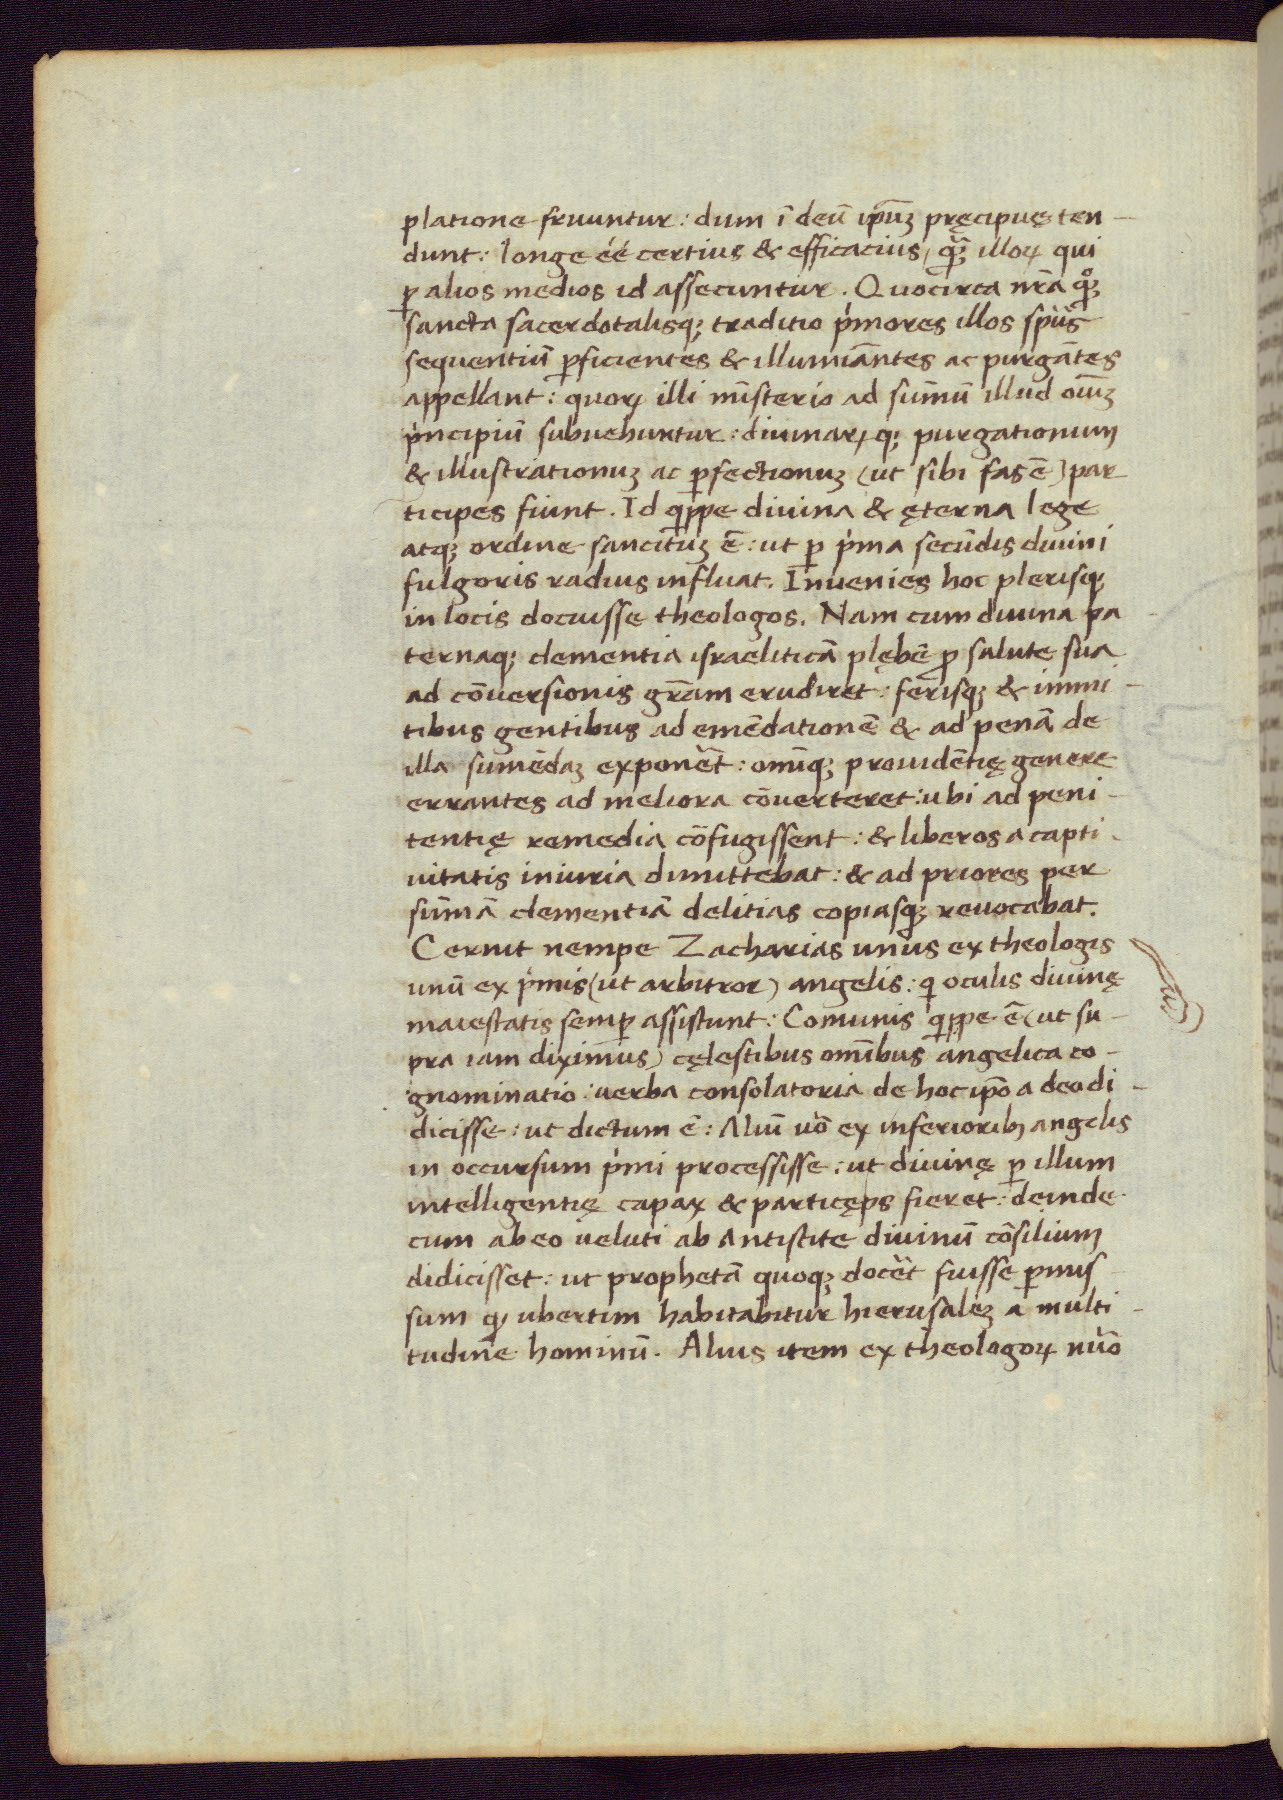 platione fruuntur: dum ī deū ip̄uʒ pręcipuę ten-
dunt: longe éé certius & efficacius, q̃ʒ illoꝝ qui
ꝑ alios medios id assecuntur. Quocirca nrā qͦʒ
sancta sacerdotalisqʒ traditio p'mores illos sp̄us
sequentiū ꝑficientes & illumiātes ac purgātes
appellant: quoꝝ illi mīsterio ad sum̄ū illud oīuʒ
p'ncipiū subuehuntur: diuinaꝝqʒ purgationum
& illustrationuʒ ac ꝑfectionuʒ (ut sibi fas ē) par
ticipes fiunt. Id q'ppe diuina & ęterna lege
atqʒ ordine sancituʒ ē: ut ꝑ p'ma secūdis diuini
fulgoris radius influat. Inuenies hoc plerisqʒ
in locis docuisse theologos. Nam cum diuina pa
ternaqʒ clementia israeliticā plębē ꝓ salute sua
ad cōuersionis gr̄am erudiret: ferisqʒ & immi-
tibus gentibus ad emēdationē & ad penā de
illa sumēdaʒ exponēt: omīqʒ prouidētię genere
errantes ad meliora cōuerteret: ubi ad peni-
tentię remedia cōfugissent: & liberos a capti-
uitatis iniuria dimittebat: & ad priores per
sum̄ā clementiā delitias copiasqʒ reuocabat.
Cernit nempe Zacharias unus ex theologis
unū ex p'mis (ut arbitror) angelis: q' oculis diuinę
maiestatis semꝑ assistunt: Comunis q'ppe ē (ut su-
pra iam diximus) cęlestibus omībus angelica co-
gnominatio: uerba consolatoria de hoc ip̄o a deo di-
dicisse: ut dictum ē: Aliū uō ex inferioribʒ angelis
in occursum p'mi processisse: ut diuinę ꝑ illum
intelligentię capax & particęps fieret: deinde
cum ab eo ueluti ab Antistite diuinū cōsilium
didicisset: ut prophetā quoqʒ docēt fuisse ꝑmis
sum qꝫ ubertim habitabitur hierusaleʒ a multi-
tudine hominū. Alius item ex theologoꝝ nūo